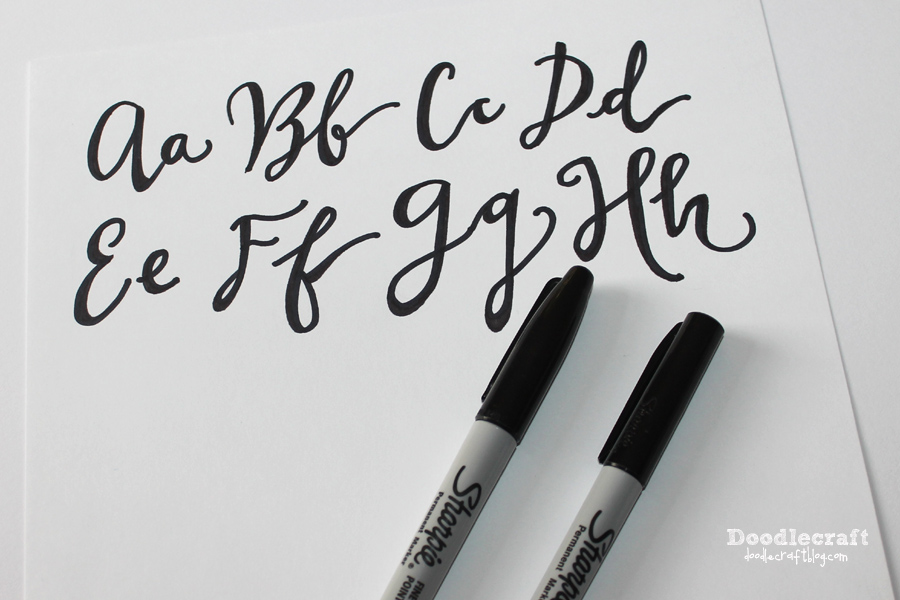 Aa Bb Cc Dd
Ee Ff Gg Hh
Sharpie
Permanent
Marker
FINE
POINT
Sharpie
Permanent
Doodlecraft
doodlecraftblog.com